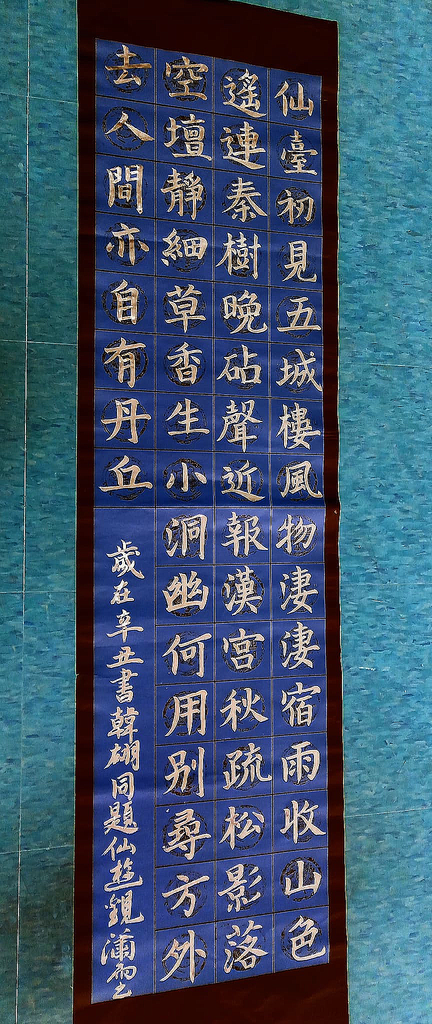 仙臺初見五城樓風物淒淒宿雨收山色
遙連秦樹晚砧聲近報漢宮秋疏松影落
空壇靜細草香生小洞幽何用別尋方外
去人間亦自有丹丘
歲在辛丑書韓翃同題仙遊觀